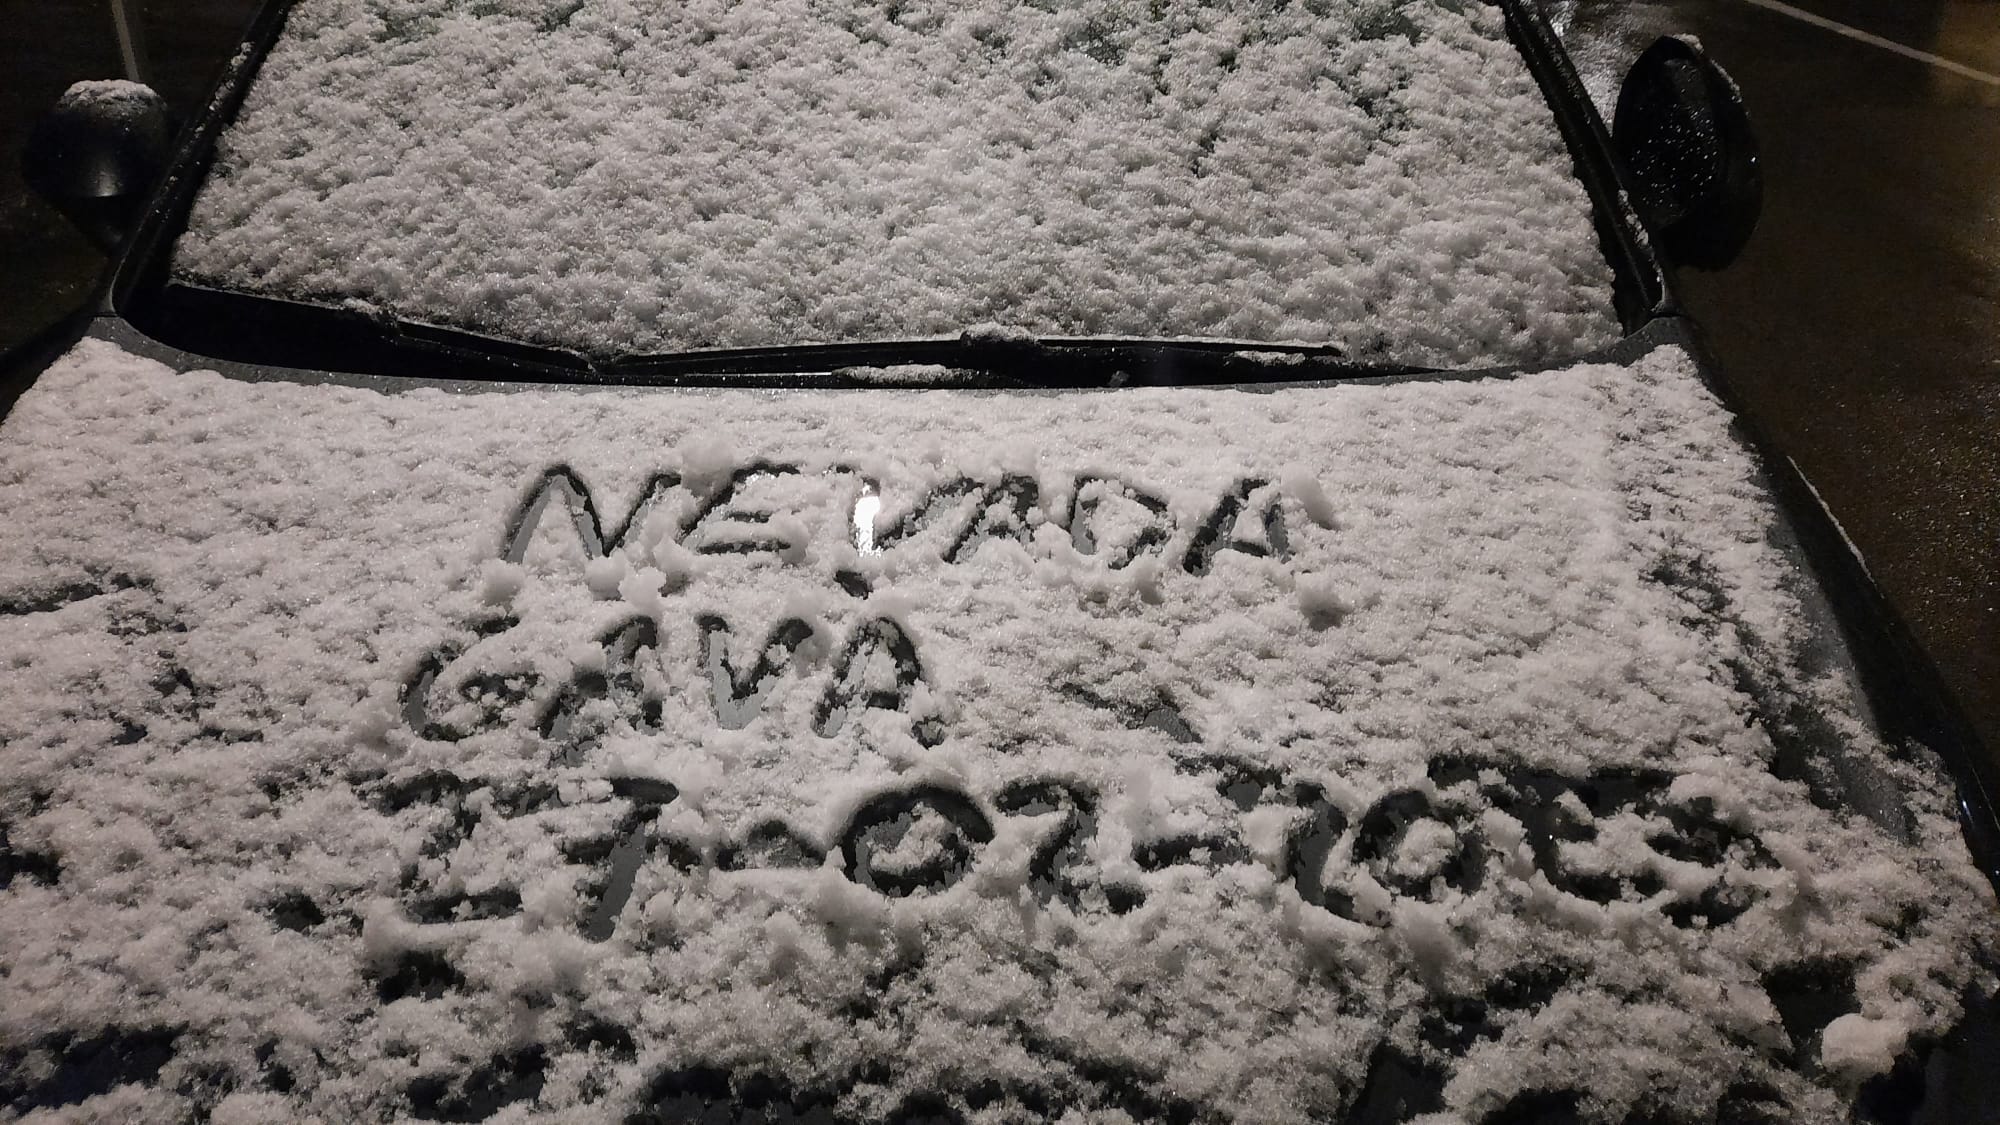 NEVADA
GAVÀ
27-02-2023